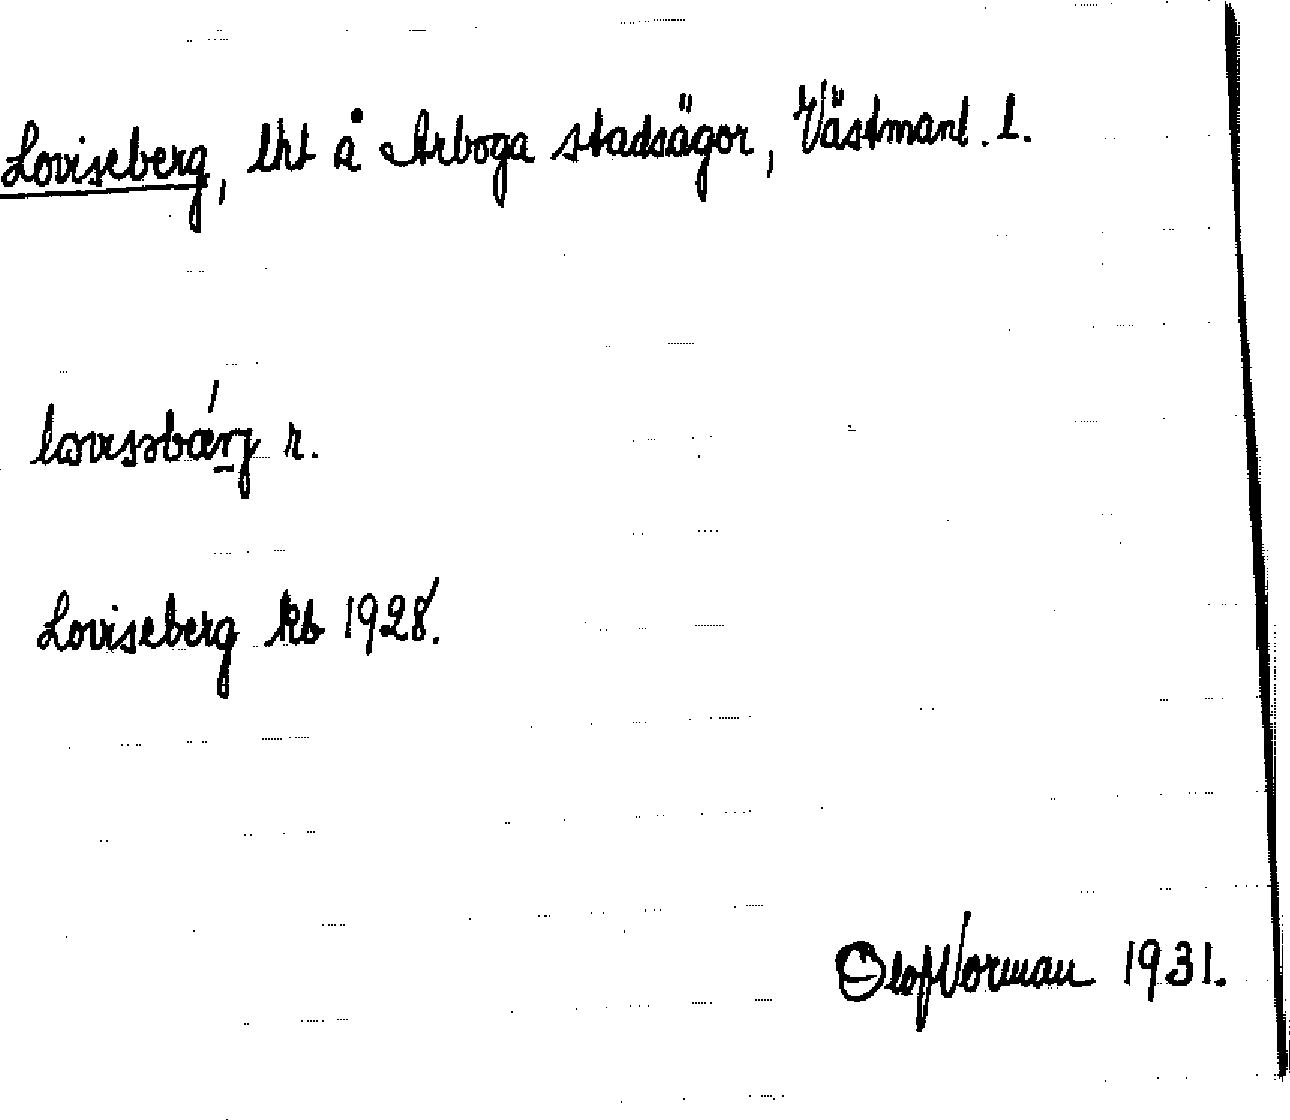 Loviseberg, lht å Arboga stadsägor, Västmanl. l.
lovisəbær̲j́ r.
Loviseberg kb 1928.
Olof Vorman 1931.